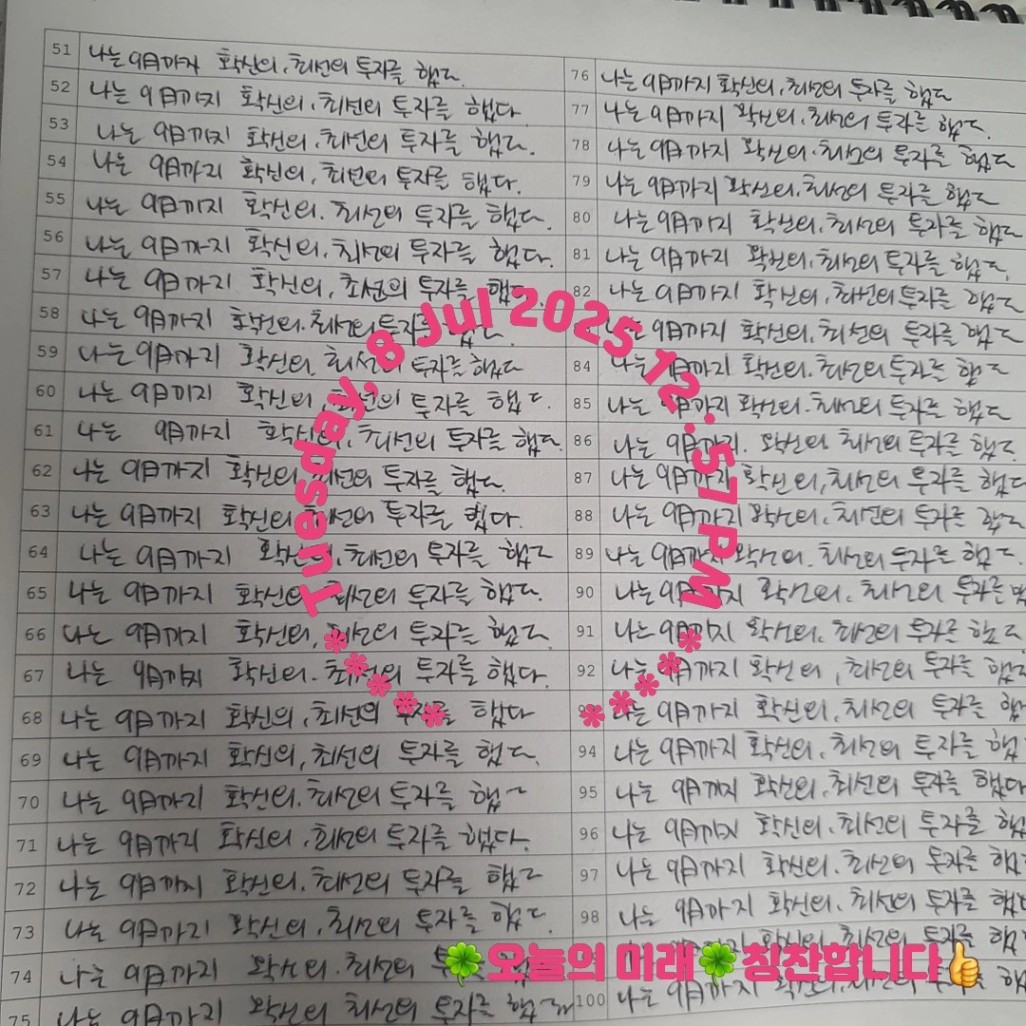 51 나는 9月까지 확신의, 최선의 투자를 했다.
52 나는 9月까지 확신의, 최선의 투자를 했다.
53 나는 9月까지 확신의, 최선의 투자를 했다.
54 나는 9月까지 확신의, 최선의 투자를 했다.
55 나는 9月까지 확신의, 최선의 투자를 했다.
56 나는 9月까지 확신의, 최선의 투자를 했다.
57 나는 9月까지 확신의, 최선의 투자를 했다.
58 나는 9月까지 확신의, 최선의 투자를 했다.
59 나는 9月까지 확신의, 최선의 투자를 했다
60 나는 9月까지 확신의, 최선의 투자를 했다.
61 나는 9月까지 확신의, 최선의 투자를 했다.
62 나는 9月까지 확신의, 최선의 투자를 했다.
63 나는 9月까지 확신의, 최선의 투자를 했다.
64 나는 9月까지 확신의, 최선의 투자를 했다
65 나는 9月까지 확신의, 최선의 투자를 했다.
66 나는 9月까지 확신의, 최선의 투자를 했다.
67 나는 9月까지 확신의. 최선의 투자를 했다.
68 나는 9月까지 확신의, 최선의 투자를 했다
69 나는 9月까지 확신의, 최선의 투자를 했다.
70 나는 9月까지 확신의. 최선의 투자를 했다
71 나는 9月까지 확신의, 최선의 투자를 했다.
72 나는 9月까지 확신의. 최선의 투자를 했다
73 나는 9月까지 확신의. 최선의 투자를 했다.
74 나는 9月까지 확신의. 최선의
75 나는 9月까지 확신의 최선의 투자를 했다
76 나는 9月까지 확신의, 최선의 투자를 했다
77 나는 9月까지 확신의. 최선의 투자를 했다.
78 나는 9月까지 확신의. 최선의 투자를 했다
79 나는 9月까지 확신의. 최선의 투자를 했다
80 나는 9月까지 확신의. 최선의 투자를 했다
81 나는 9月까지 확신의, 최선의 투자를 했다.
82 나는 9月까지 확신의, 최선의 투자를 했다
나는 9月까지 확신의, 최선의 투자를 했다
84 나는 9月까지 확신의. 최선의 투자를 했다
85 나는 9月까지 확신의. 최선의 투자를 했다
86 나는 9月까지. 확신의 최선의 투자를 했다.
87 나는 9月까지 확신의, 최선의 투자를 했다
88 나는 9月까지 확신의, 최선의 투자를 했다
89 나는 9月까지 확신의. 최선의 투자를 했다.
90 나는 9月까지 확신의. 최선의 투자를
91 나는 9月까지 확신의. 최선의 투자를 했다
92 나는 9月까지 확신의, 최선의 투자를 했다
나는 9月까지 확신의, 최선의 투자를 했
94 나는 9月까지 확신의, 최선의 투자를 했
95 나는 9月까지 확신의, 최선의 투자를 했다
96 나는 9月까지 확신의, 최선의 투자를 했
97 나는 9月까지 확신의. 최선의 투자를 했
98 나는 9月까지 확신의, 최선의 투자를 했
100 나는 9月까지
Tuesday, 8 Jul 2025 12:57 PM
🍀오늘의 미래🍀칭찬합니다👍